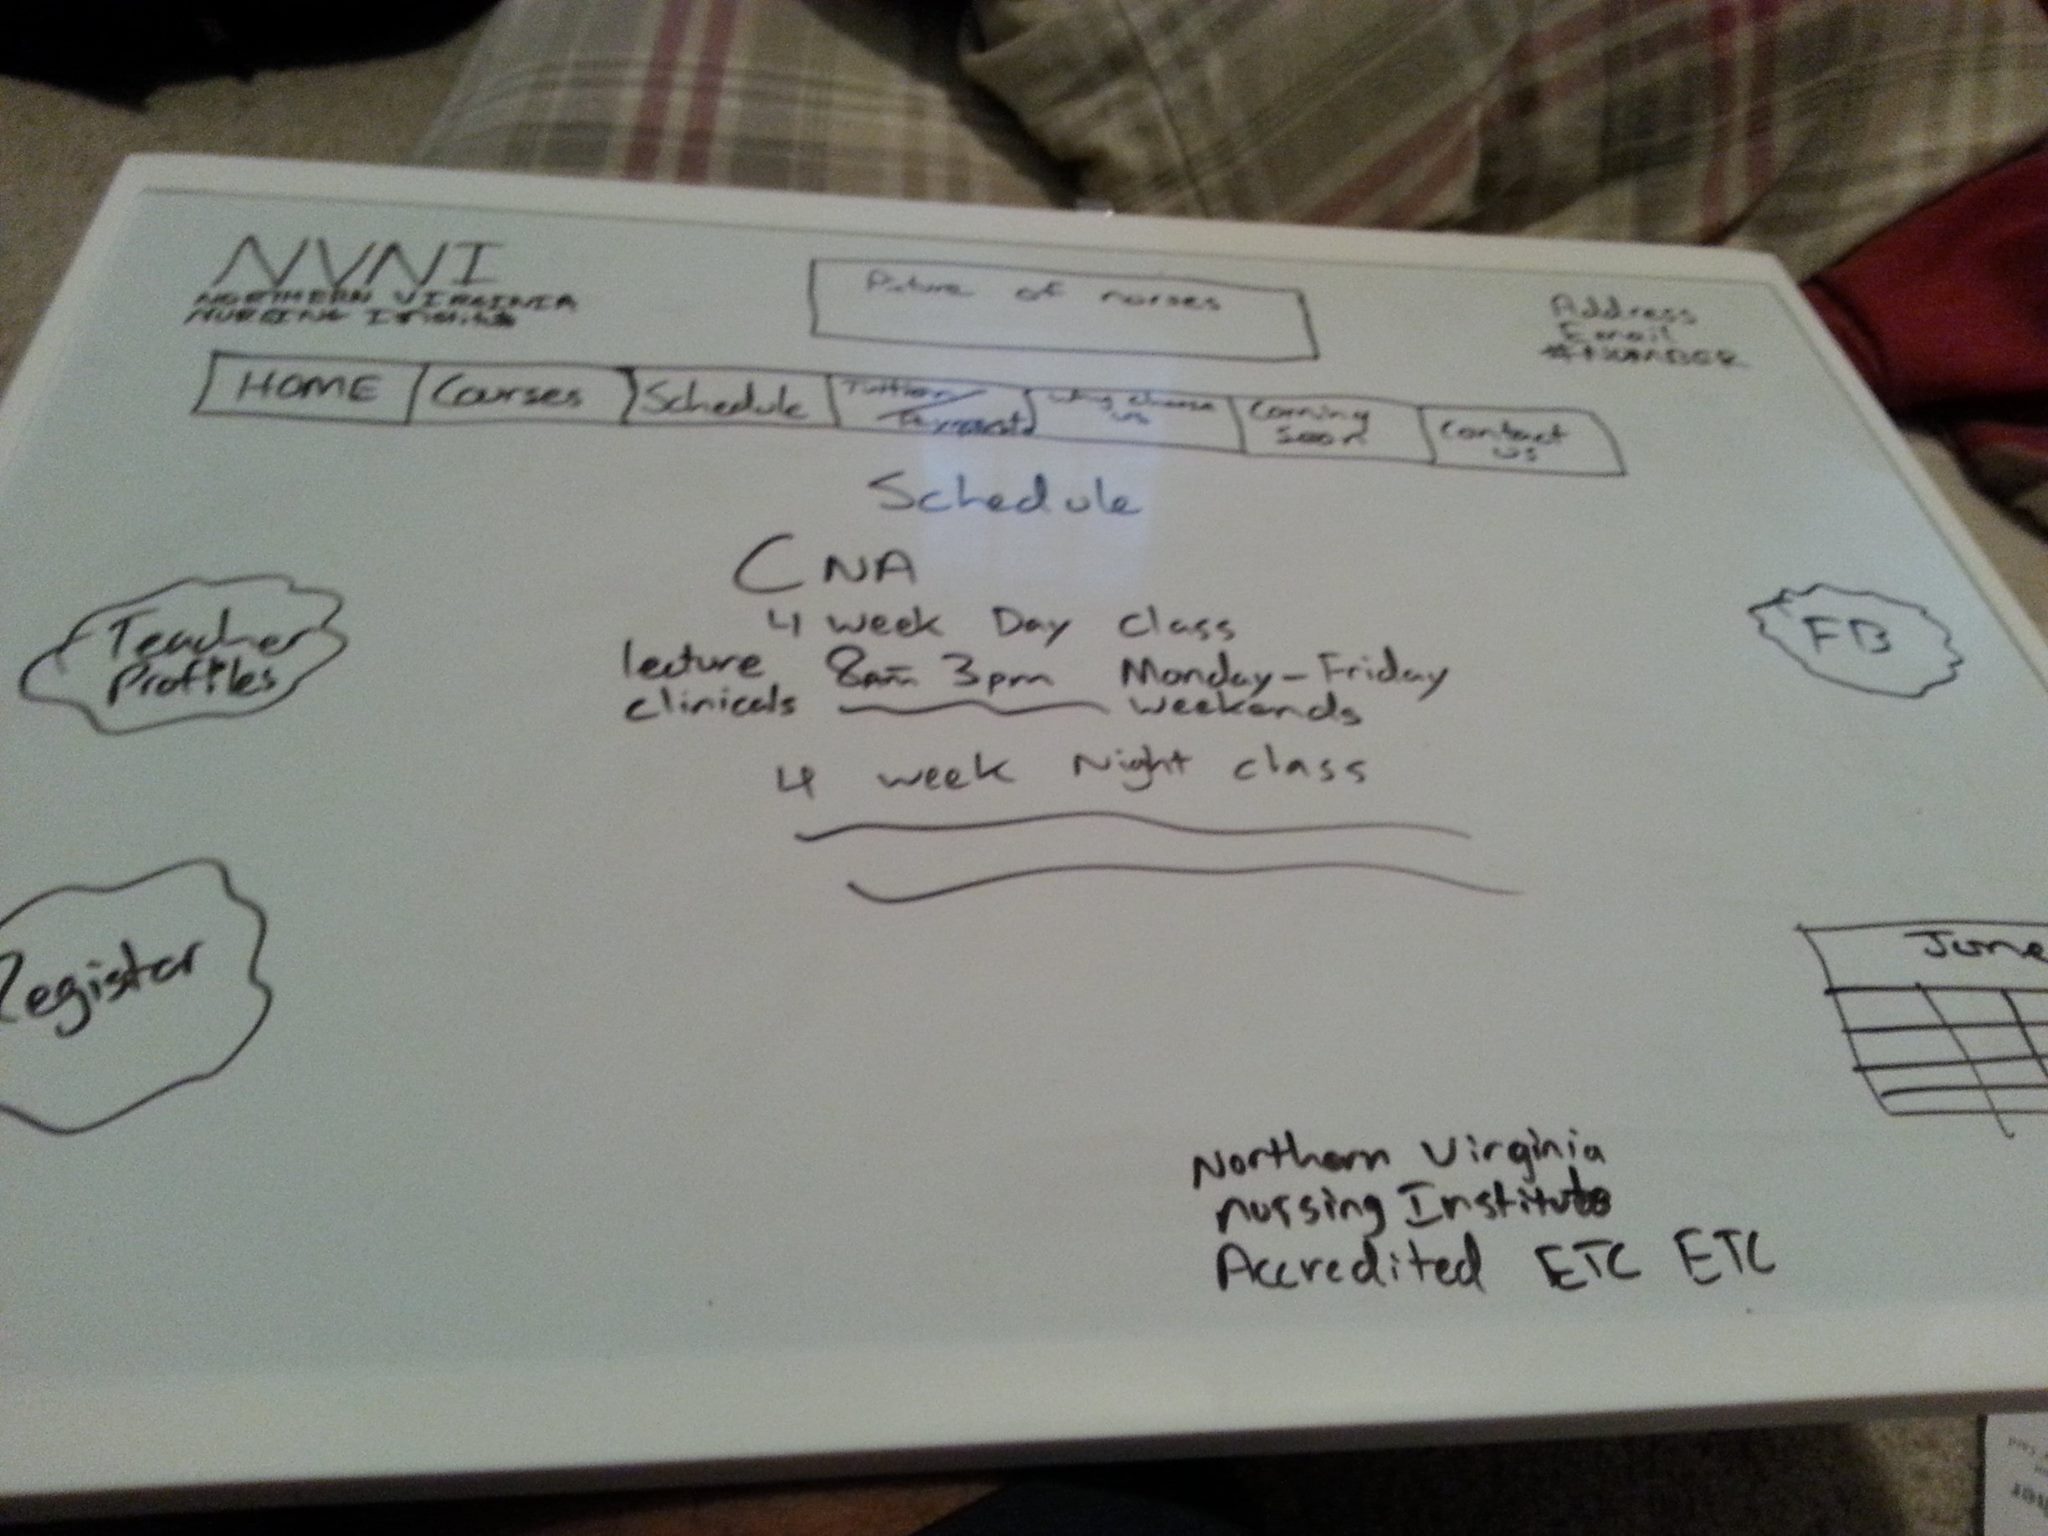 NVNI
NORTHERN VIRGINIA
NURSING Institute
Picture of nurses
Address
Email
#NUMBER
HOME
Courses
Schedule
Tuition/
Payments
Why choose
us
Coming
Soon
Contact
us
Schedule
CNA
4 week Day class
lecture 8am - 3pm Monday - Friday
clinicals weekends
4 week Night class
Teacher
Profiles
FB
Register
June
Northern Virginia
nursing Institute
Accredited ETC ETC